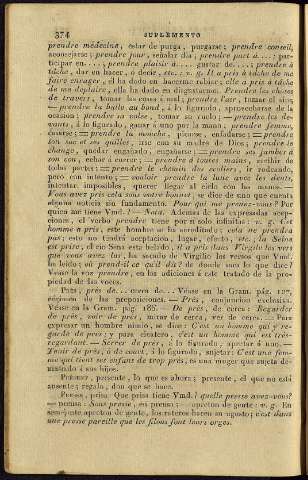 374 SUPLEMENTO
prendre médecine, estar de purga, purgarse; prendre conseil,
aconsejarse; prendre jour, señalar dia; prendre part à....: par-
ticipar en....; prendre plaisir à.... gustar de....; prendre à
tâche, dar en hacer, ó decir, etc.. v. g. Il a pris à tâche de me
faire enrager, él ha dado en hacerme rabiar; elle a pris à tâche
de me deplaire, ella ha dado en disgustarme. Prendre les choses
de travers, tomar las cosas á mal; prendre l'air, tomar el aire;
— prendre la balle au bond, á lo figurado, aprovecharse de la
ocasion; prendre sa volée, tomar su vuelo; — prendre les de-
vants, á lo figurado, ganar á uno por la mano; prendre femme,
casarse; — prendre la mouche, picarse, enfadarse; — prendre
son sac et ses quilles, irse con su madre de Dios; prendre le
change, quedar engañado, engañarse; — prendre ses jambes à
son cou, echar á correr; — prendre à toutes mains, recibir de
todas partes; — prendre le chemin des écoliers, ir rodeando,
pero con intento; — vouloir prendre la lune avec les dents,
intentar imposibles, querer llegar al cielo con las manos. —
Vous avez pris cela sous votre bonnet, se dice de uno que cuenta
alguna noticia sin fundamento. Pour qui me prenez-vous? Por
quien me tiene Vmd.? — Nota. Ademas de las expresadas acep-
ciones, el verbo prendre tiene por sí solo infinitas: v. g. Cet
homme a pris, este hombre se ha acreditado; cela ne prendra
pas, esto no tendrá aceptacion, lugar, efecto, etc.; la Seine
est prise, el rio Sena está helado, il a pris dans Virgile les vers
que vous avez lus, ha sacado de Virgilio los versos que Vmd.
ha leido; où prend-il ce qu'il dit? de donde saca lo que dice?
Véase la voz prendre, en las adiciones á este tratado de la pro-
piedad de las voces.
Près, près de.. cerca de... Véase en la Gram. pág. 127,
régimen de las preposiciones. — Près, conjuncion exclusiva.
Véase en la Gram. pág. 186. — De près, de cerca; Regarder
de près, voir de près, mirar de cerca, ver de cerca. — Para
expresar un hombre nimio, se dice: C'est un homme qui y re-
garde de près; y para ciertos, c'est un homme qui est très-
regardant. — Serrer de près, á lo figurado, apretar á uno. —
Tenir de près, à de court, á lo figurado, sujetar: C'est une fem-
me qui tient ses enfans de trop près, es una muger que sujeta de-
masiado á sus hijos.
Présent, presente, lo que es ahora; presente, el que no está
ausente; regalo, don que se hace.
Presse, prisa. Que prisa tiene Vmd.! quelle presse avez-vous?
— prensa: Sous presse, en prensa; — apreton de gente: v. g. En
semejante apreton de gente, los rateros hacen su agosto; c'est dans
une presse pareille que les filous font leurs orges.